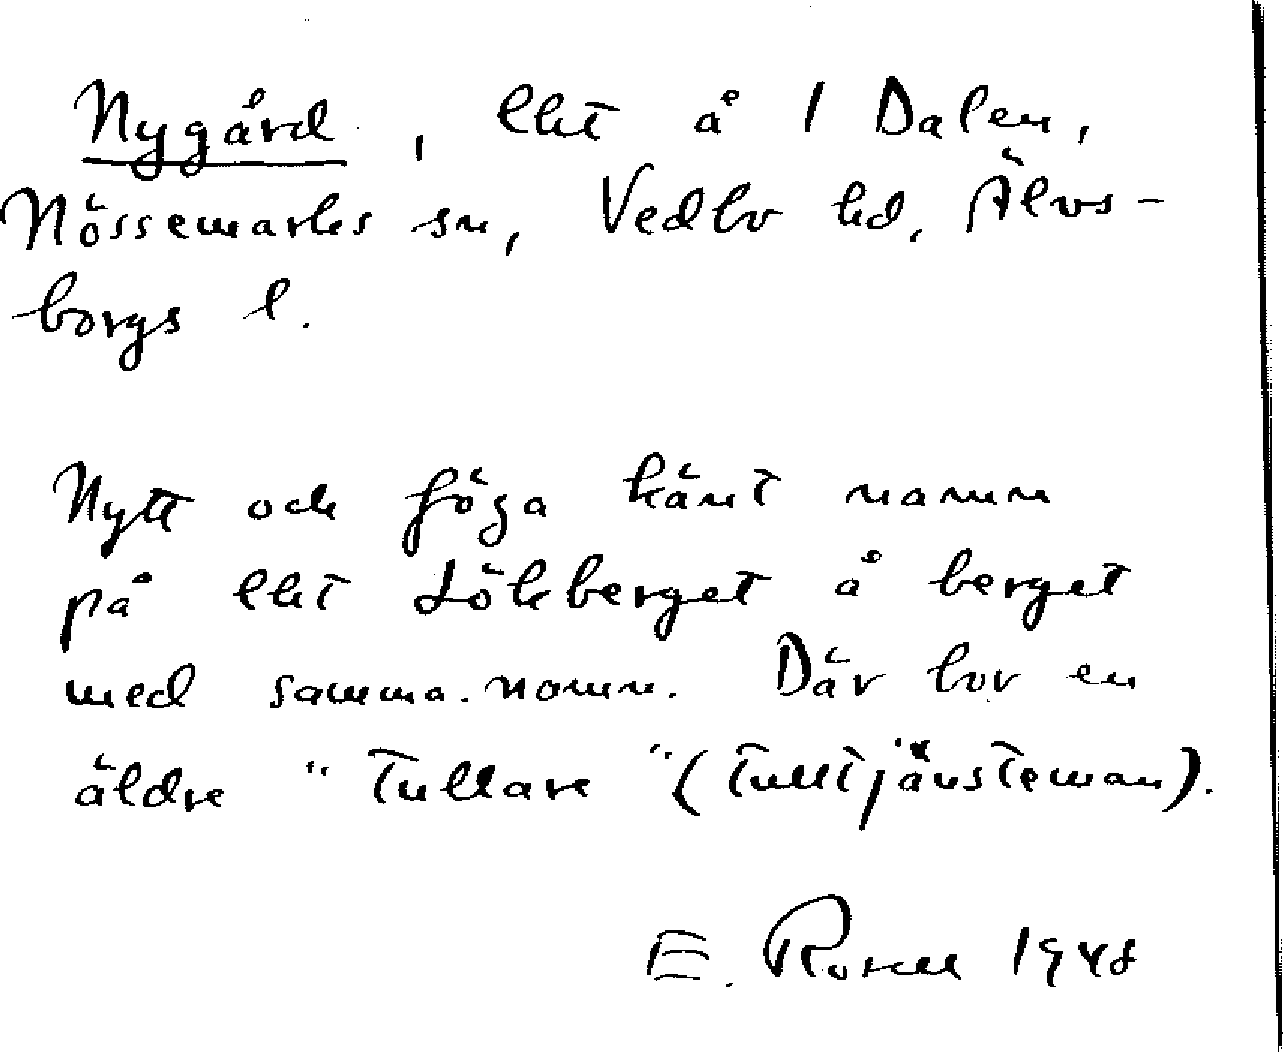 Nygård, lht å 1 Dalen,
Nössemarks sn, Vedbo hd, Älvs-
borgs l.
Nytt och föga känt namn
på lht Lökberget å berget
med samma namn. Där bor en
äldre "Tullare" (Tulltjänsteman).
E. Rosell 1948